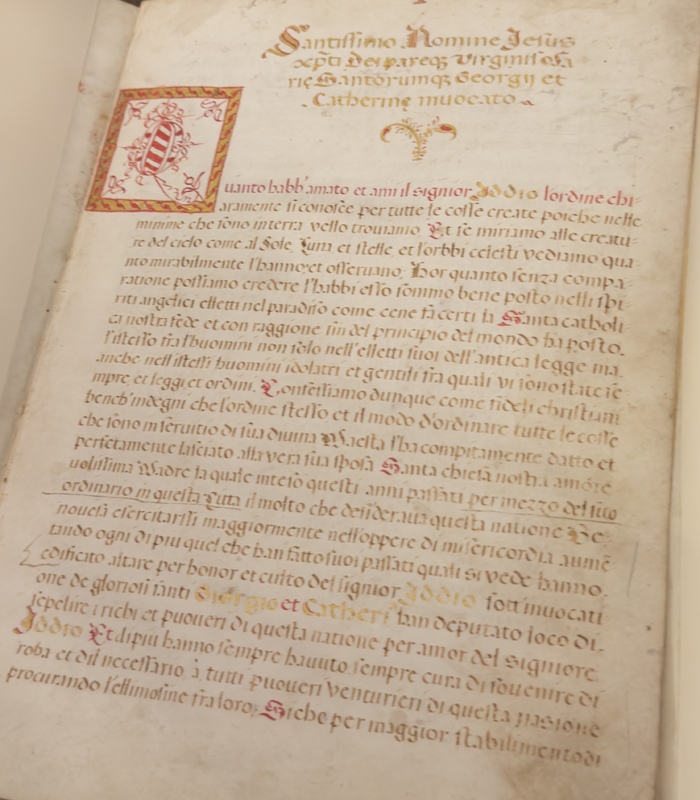 Santissimo Nomine Jesus
xp̄ti Deipareq; Virginis Ma
rię Santorumq; Georgij et
Catherinę inuocato
Quanto babb'amato et ami il signior Iddio l'ordine chi-
aramente si conosce per tutte le cosse create poiche nelle
minime che sono in terra vello trouiamo Et se miriamo alle creatu-
re del cielo come al Sole, Luna et stelle, et l'orbbi celesti vediamo qua-
nto mirabilmente l'hanno; et osseruano, Hor quanto senza compa-
ratione possiamo credere l'habbi esso sommo bene posto nelli spi-
riti angelici eletti nel paradiso come cene fa certi la Santa catholi-
ca nostra fede et con raggione sin del principio del mondo ha posto.
l'istesso fra l'huomini non solo nell'eletti suoi dell'antica legge ma.
anche nell'istessi huomini idolatri et gentili fra quali vi sono state se
mpre, et leggi et ordini. Confessiamo dunque come fideli christiani
bench'indegni che l'ordine stesso et il modo d'ordinare tutte le cosse
che sono in seruitio di sua diuina Maesta l'ha compitamente datto et
perfetamente lasciato alla vera sua sposa Santa chiesa nostra amore
uolissima Madre la quale inteso questi anni passati per mezzo del suo
ordinario in questa Citta il molto che desideraua questa natione Ge-
nouesa esercitarssi maggiormente nell'oppere di misericordia aumē
tando ogni di piu quel che han fatto suoi passati quali si vede hanno.
edificato altare per honor et culto del signior Iddio sott'inuocati
one de gloriosi santi Giorgio et Catheri han deputato loco di.
sepelire i richi et puoueri di questa natione per amor del signiore.
Iddio Et di piu hanno sempre hauuto sempre cura di souenire di
roba et dil necessario à tutti puoueri venturieri di questa nasione
procurando l'ellimosine fra loro; Siche per maggior stabilimento di